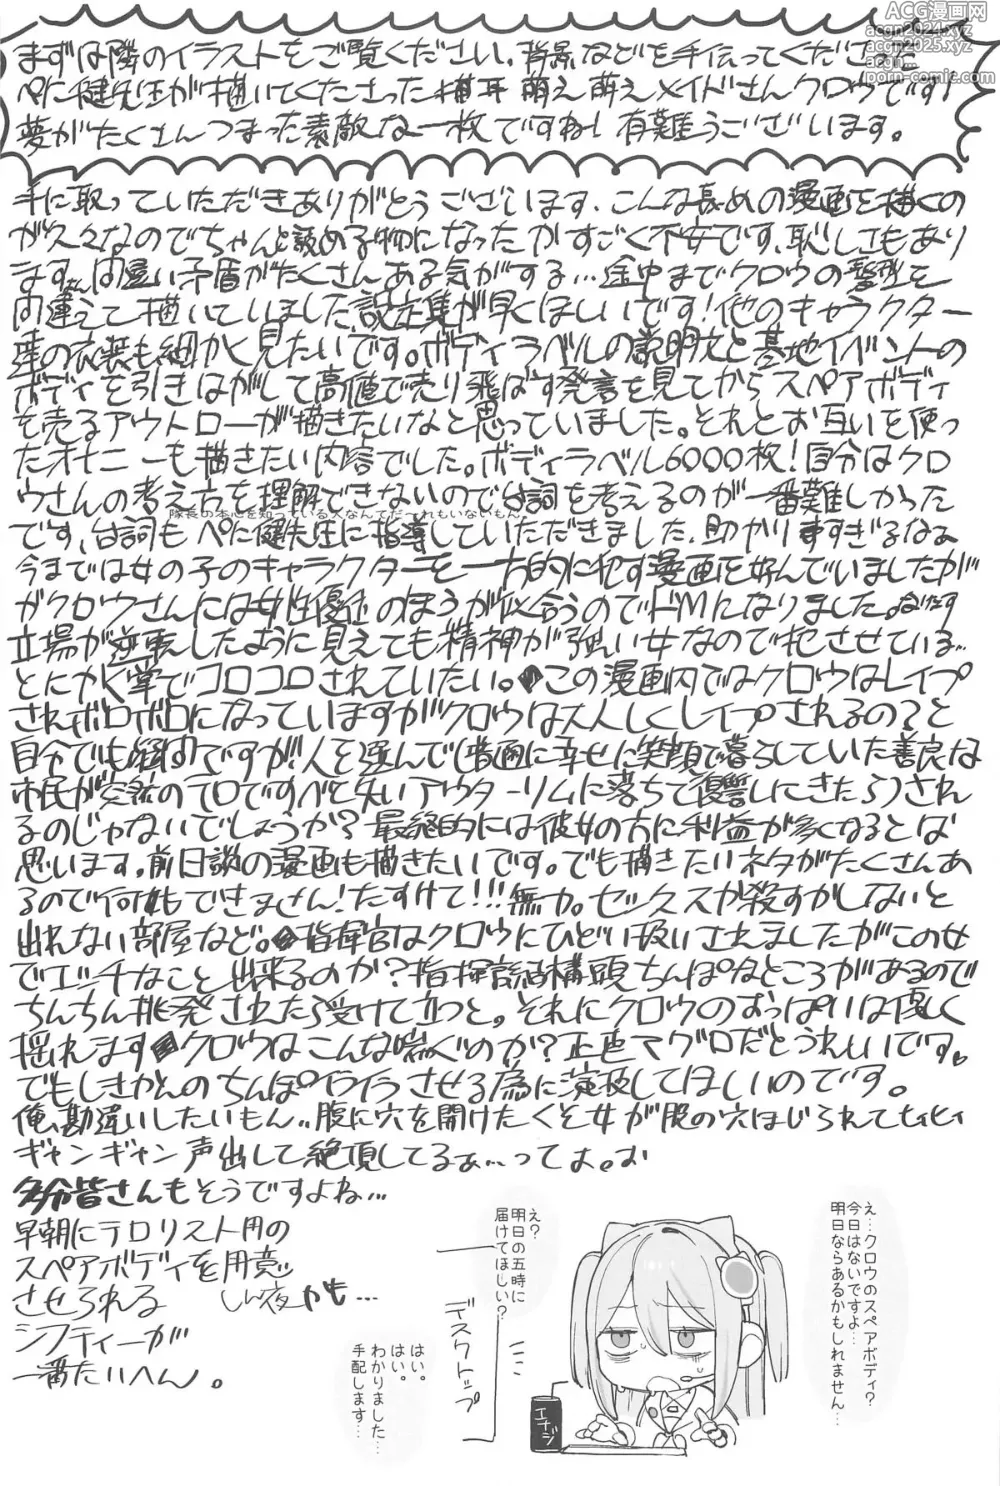 ACG漫画网
acgn2024.xyz
acgn2025.xyz
acgn...
porn-comic.com
まずは隣のイラストをご覧ください。背景などを手伝ってくださった
ぺに健先生が描いてくださった猫耳 萌え萌えメイドさんクロウです!
夢がたくさんつまった素敵な一枚ですね!有難うございます。
手に取っていただきありがとうございます、こんな長めの漫画を描くの
が久々なのでちゃんと読め物になったかすごく不安です、恥しさもあり
ます。間違い矛盾がたくさんある気がする…途中までクロウの髪型を
間違えて描いていました 設定集が早くほしいです!他のキャラクター
達の衣装も細かく見たいです。ボディラベルの説明文と基地イベントの
ボディを引きはがして高値で売り飛ばす発言を見てから スペアボディ
を売るアウトローが描きたいなと思っていました。それとお互いを使っ
たオナニーも描きたい内容でした。ボディラベル6000枚!自分はクロ
ウさんの考え方を理解できないので台詞を考えるのが一番難しかった
隊長の本心を知っている人なんてだ〜れもいないもん。
です、台詞も ぺに健先生に指導していただきました、助かりすぎるなぁ
今までは女の子のキャラクターを一方的に犯す漫画を好んでいましたが
がクロウさんには女性優位のほうが似合うのでドMになりました。
立場が逆転したように見えても精神が強い女なので犯させている…
とにかく掌でコロコロされていたい。この漫画内ではクロウはレイプ
されボロボロになっていますがクロウは大人しくレイプされるの?と
自分でも疑問ですが!人を選んで
に幸せに笑顔で暮らしていた善良な
市民が突然のテロですべてを失いアウターリムに落ちて復讐しにきたら)され
るのじゃないでしょうか?最終的には彼女の方に利益が多くなるとは
思います。前日談の漫画も描きたいです。でも描きたいネタがたくさんあ
るので何もできません!たすけて!!!無力。セックスか殺すかしないと
出れない部屋など。指揮官はクロウにひどい扱いされましたがこの女
でエッチなこと出来るのか?指揮官は結構頭ちんぽなところがあるので
ちんちん挑発されたら受けて立つと。それにクロウのおっぱいは優しく
揺れます クロウはこんな喘ぐのか?正直マグロだとうれしいです。
でもしきかんのちんぽイライラさせる為に演技してほしいのです。
俺、勘違いしたいもん..腹に穴を開けたくそ女が股の穴ほじられてヒィヒィ
ギャンギャン声出して絶頂してるぁ…ってょ。お
多分皆さんもそうですよね…
早朝にテロリスト用の
スペアボディを用意
させられる しん夜かも…
シフティーが
一番たいへん。
え…クロウのスペアボディ?
今日はないですよ…
明日ならあるかもしれません…
え?
明日の五時に
届けてほしい?
デスクトップ
はい。
はい。
わかりました…
手配します…
エナジ